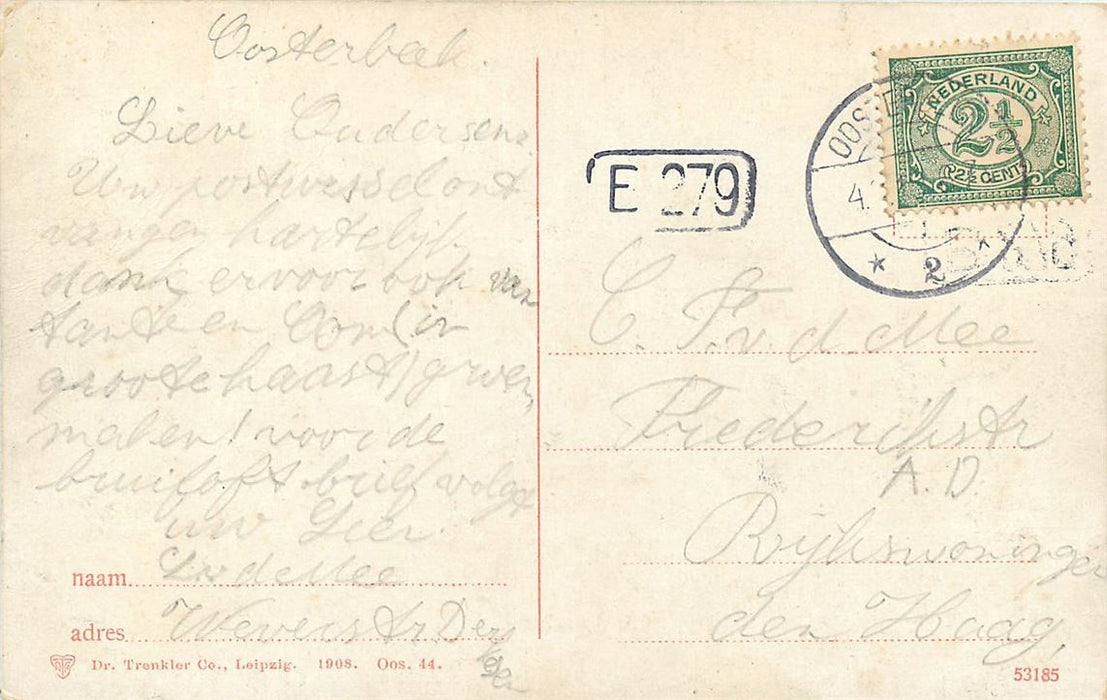 Oosterbeek.
Lieve Ouders en
Uw postwissel ont
vangen hartelijk
dank er voor ook van
tante en Oom (in
groote haast)
malen! voor de
bruiloft. brief volgt
uw Leen
naam L v d Mee
adres Wevers str
Dr. Trenkler Co., Leipzig. 1908. Oos. 44.
NEDERLAND
2½
(2½ CENT)
OOST
4.
2
E 279
C. F. v. d. Mee
Frederikstr
A. D.
Rijkswoningen
den Haag,
53185